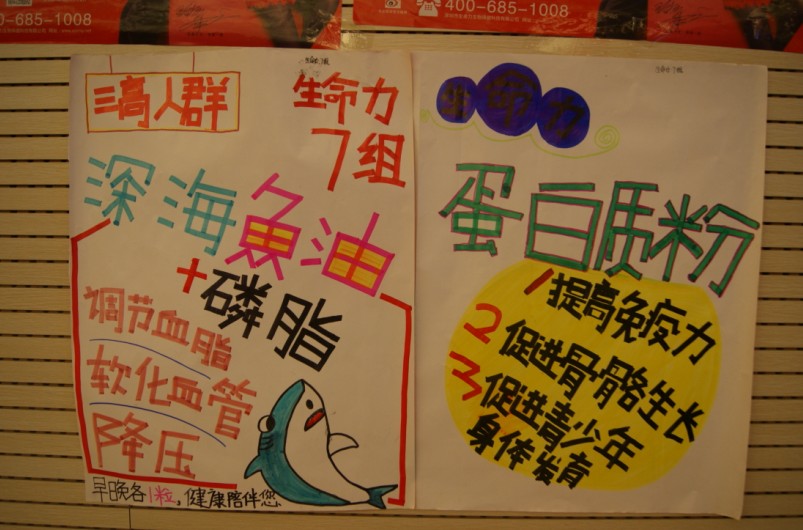 0-685-1008
400-685-1008
三高人群
生命力
7组
深海魚油
+磷脂
调节血脂
软化血管
降压
早晚各1粒,健康陪伴您
生命力
蛋白质粉
1提高免疫力
2促进骨骼生长
3促进青少年
身体发育